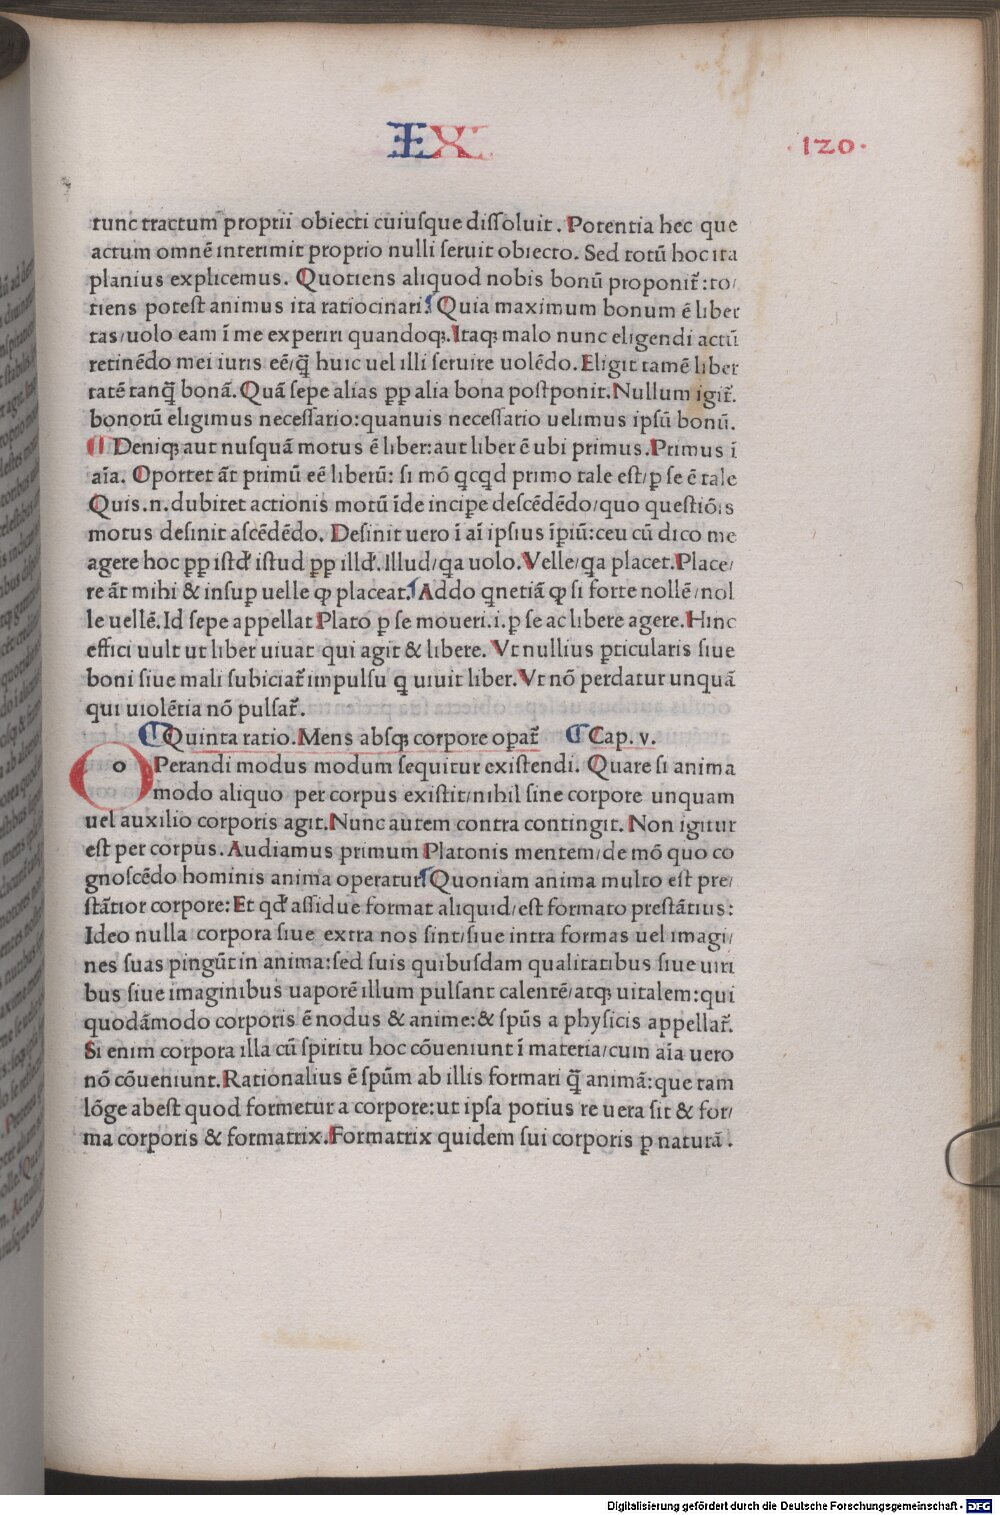 IX
·120·
tunc tractum proprii obiecti cuiuſque diſſoluit. Potentia hec que
actum omnē interimit proprio nulli ſeruit obiecto. Sed totū hoc ita
planius explicemus. Quotiens aliquod nobis bonū proponit̄: to/
tiens poteſt animus ita ratiocinari. Quia maximum bonum ē liber
tas/uolo eam ī me experiri quandoqꝫ. Itaqꝫ malo nunc eligendi actū
retinēdo mei iuris eē/q̄ huic uel illi ſeruire uolēdo. Eligit tamē liber
tatē tanq̄ bonā. Quā ſepe alias ꝓꝑ alia bona poſtponit. Nullum igit̄.
bonorū eligimus neceſſario: quanuis neceſſario uelimus ipſū bonū.
¶ Deniqꝫ aut nuſquā motus ē liber: aut liber ē ubi primus. Primus ī
aīa. Oportet āt primū eē liberū: ſi mō qcqd primo tale eſt/ꝑ ſe ē tale
Quis.n. dubitet actionis motū īde inciꝑe deſcēdēdo/quo queſtiōis
motus deſinit aſcēdēdo. Deſinit uero ī aī ipſius īꝑiū: ceu cū dico me
agere hoc ꝓꝑ iſtđ iſtud ꝓꝑ illđ. Illud/qa uolo. Velle/qa placet. Place/
re āt mihi & inſuꝑ uelle ꝙ placeat. Addo qnetiā ꝙ ſi forte nollē/nol
le uellē. Id ſepe appellat Plato ꝑ ſe moueri.i.ꝑ ſe ac libere agere. Hinc
effici uult ut liber uiuat qui agit & libere. Vt nullius ꝑticularis ſiue
boni ſiue mali ſubiciat̄ impulſu q uiuit liber. Vt nō perdatur unquā
qui uiolētia nō pulſat̄.
¶ Quinta ratio. Mens abſqꝫ corpore oꝑat̄ ¶ Cap. v.
o Perandi modus modum ſequitur exiſtendi. Quare ſi anima
modo aliquo per corpus exiſtit/nihil ſine corpore unquam
uel auxilio corporis agit. Nunc autem contra contingit. Non igitur
eſt per corpus. Audiamus primum Platonis mentem/de mō quo co
gnoſcēdo hominis anima operatur. Quoniam anima multo eſt pre/
ſtātior corpore: Et qđ aſſidue format aliquid/eſt formato preſtātius:
Ideo nulla corpora ſiue extra nos ſint/ſiue intra formas uel imagi/
nes ſuas pingūt in anima: ſed ſuis quibuſdam qualitatibus ſiue uiri
bus ſiue imaginibus uaporē illum pulſant calentē/atqꝫ uitalem: qui
quodāmodo corporis ē nodus & anime: & ſpūs a phyſicis appellat̄.
Si enim corpora illa cū ſpiritu hoc cōueniunt ī materia/cum aīa uero
nō cōueniunt. Rationalius ē ſpūm ab illis formari q̄ animā: que tam
lōge abeſt quod formetur a corpore: ut ipſa potius re uera ſit & for/
ma corporis & formatrix. Formatrix quidem ſui corporis ꝑ naturā.
Digitalisierung gefördert durch die Deutsche Forschungsgemeinschaft - DFG